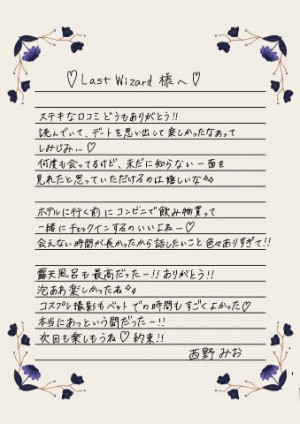 ♡ Last Wizard 様へ ♡
ステキな口コミどうもありがとう!!
読んでいて、デートを思い出して楽しかったなぁって
しみじみ…♡
何度も会ってるけど、未だに知らない一面を
見れたと思っていただけるのは嬉しいな✧✧
ホテルに行く前にコンビニで飲み物買って
一緒にチェックインするのいいよねー♡
会えない時間が長かったから話したいこと色々ありすぎて!!
露天風呂も最高だったー!!ありがとう!!
泡あわ楽しかったね✧✧
コスプレ撮影もベットでの時間もすごくよかった♡
本当にあっという間だったー!!
次回も楽しもうね♡約束!!
西野 みお